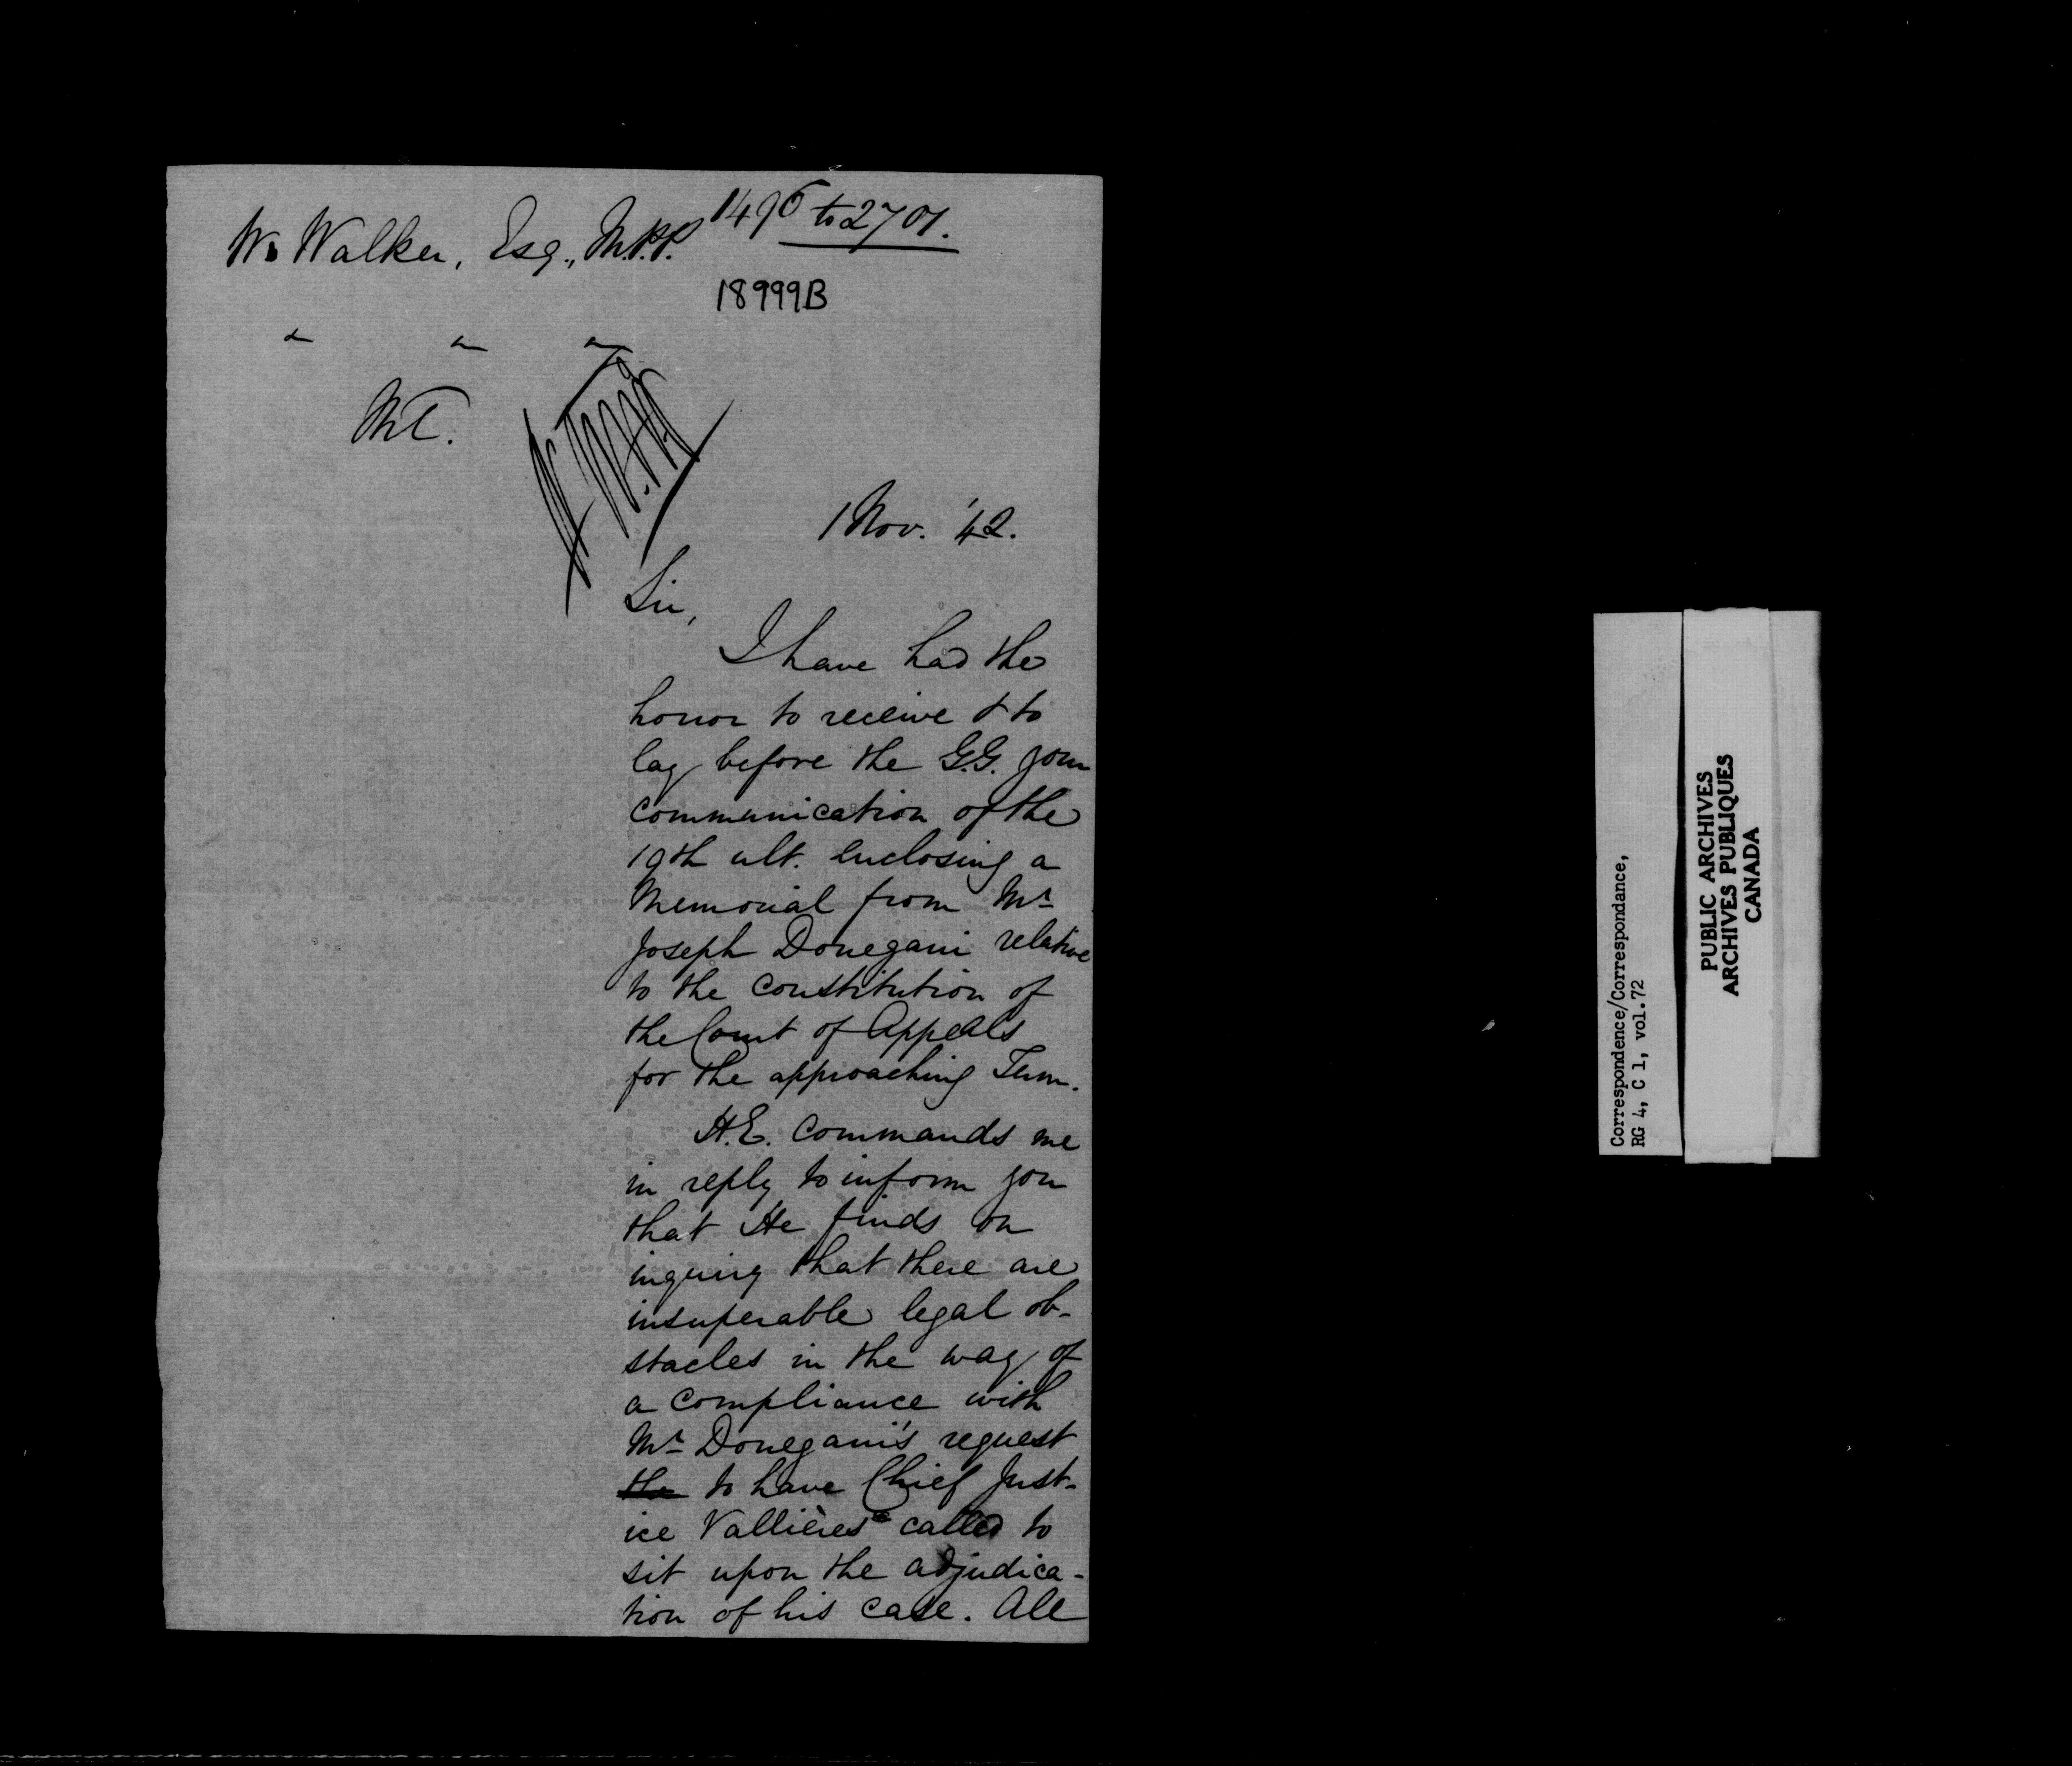 1496 to 2701.
W. Walker, Esq., M.P.P.
18999B
" " "
1 Nov. '42.
Sir,
I have had the
honor to receive & to
lay before the G.G. your
communication of the
19th ult. enclosing a
Memorial from Mr
Joseph Donegani relative
to the constitution of
the Court of Appeals
for the approaching Term.
H.E. commands me
in reply to inform you
that He finds on
inquiry that there are
insuperable legal ob-
stacles in the way of
a compliance with
Mr Donegani's request
the to have Chief Just-
ice Vallières called to
sit upon the adjudica-
tion of his case. All
Correspondence/Correspondance,
RG 4, C 1, vol.72
PUBLIC ARCHIVES
ARCHIVES PUBLIQUES
CANADA